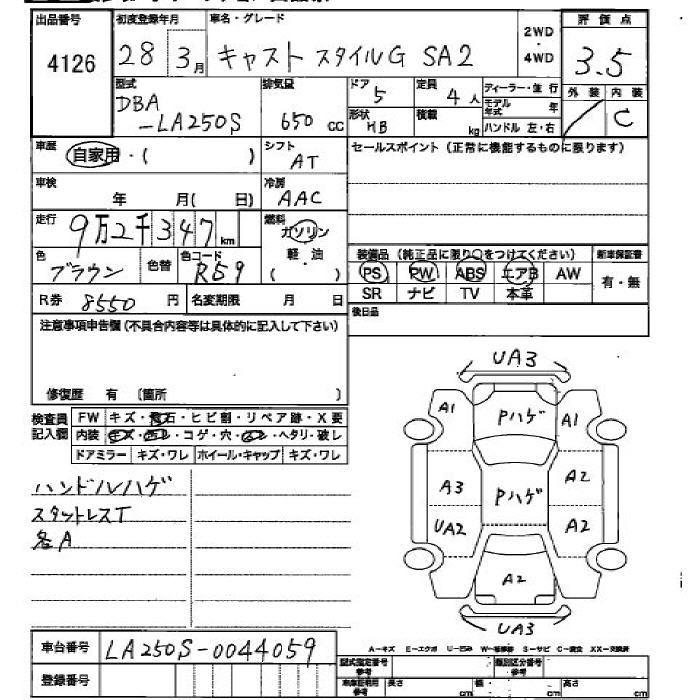 出品番号 初度登録年月 車名・グレード 2WD・4WD 評価点
4126 28 3月 キャスト スタイルG SA2 3.5
型式 排気量 ドア 定員 ディーラー・並行 外装 内装
DBA 5 4人 モデル年式 年 C
-LA250S 650 cc 形状 HB 積載 kg ハンドル 左・右
車歴 自家用・( ) シフト AT セールスポイント(正常に機能するものに限ります)
車検 年 月( 日) 冷房 AAC
走行 9万2千347km 燃料 ガソリン
軽・油
( )
色 ブラウン 色替 色コード R59
装備品(純正品に限り○をつけてください) 新車保証書
PS PW ABS エアB AW 有・無
SR ナビ TV 本革
R券 8550円 名変期限 月 日 後日品
注意事項申告欄(不具合内容等は具体的に記入して下さい)
修復歴 有 (箇所 )
検査員記入欄 FW キズ・飛石・ヒビ割・リペア跡・X要
内装 キズ・・コゲ・穴・・ヘタリ・破レ
ドアミラー キズ・ワレ ホイール・キャップ キズ・ワレ
ハンドルハゲ
スタットレスT
各A
UA3
A1 Pハゲ A1
A3 Pハゲ A2
UA2 A2
A2
UA3
A-キズ E-エクボ U-凹ミ W-補修跡 S-サビ C-腐食 XX-交換済
車台番号 LA250S-0044059
登録番号
型式指定番号 参考 類別区分番号 参考
車庫証明用 参考 長さ cm 幅 cm 高さ cm